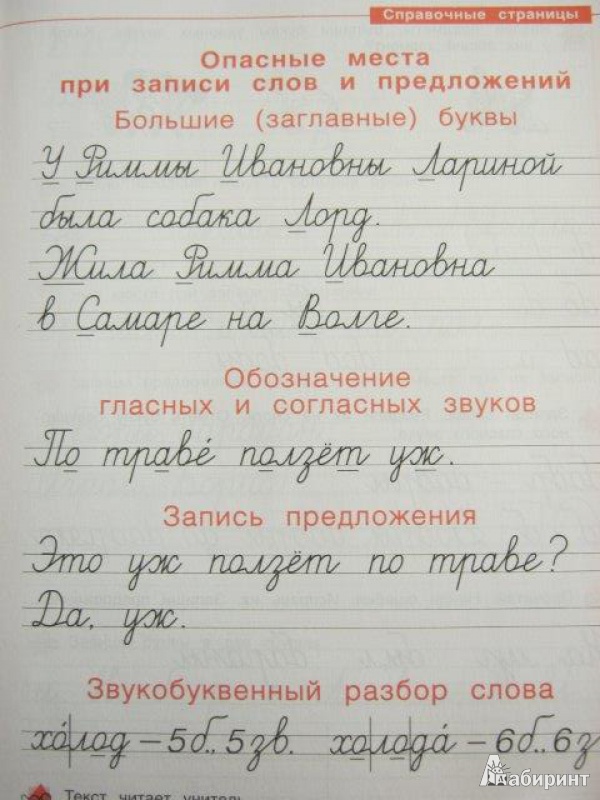 Справочные страницы
Опасные места
при записи слов и предложений
Большие (заглавные) буквы
У Риммы Ивановны Лариной
была собака Лорд.
Жила Римма Ивановна
в Самаре на Волге.
Обозначение
гласных и согласных звуков
По траве́ ползёт уж.
Запись предложения
Это уж ползёт по траве?
Да, уж.
Звукобуквенный разбор слова
хо́|лод – 5б., 5зв. хо|ло|да́ – 6б., 6з
Текст читает учитель.
Лабиринт